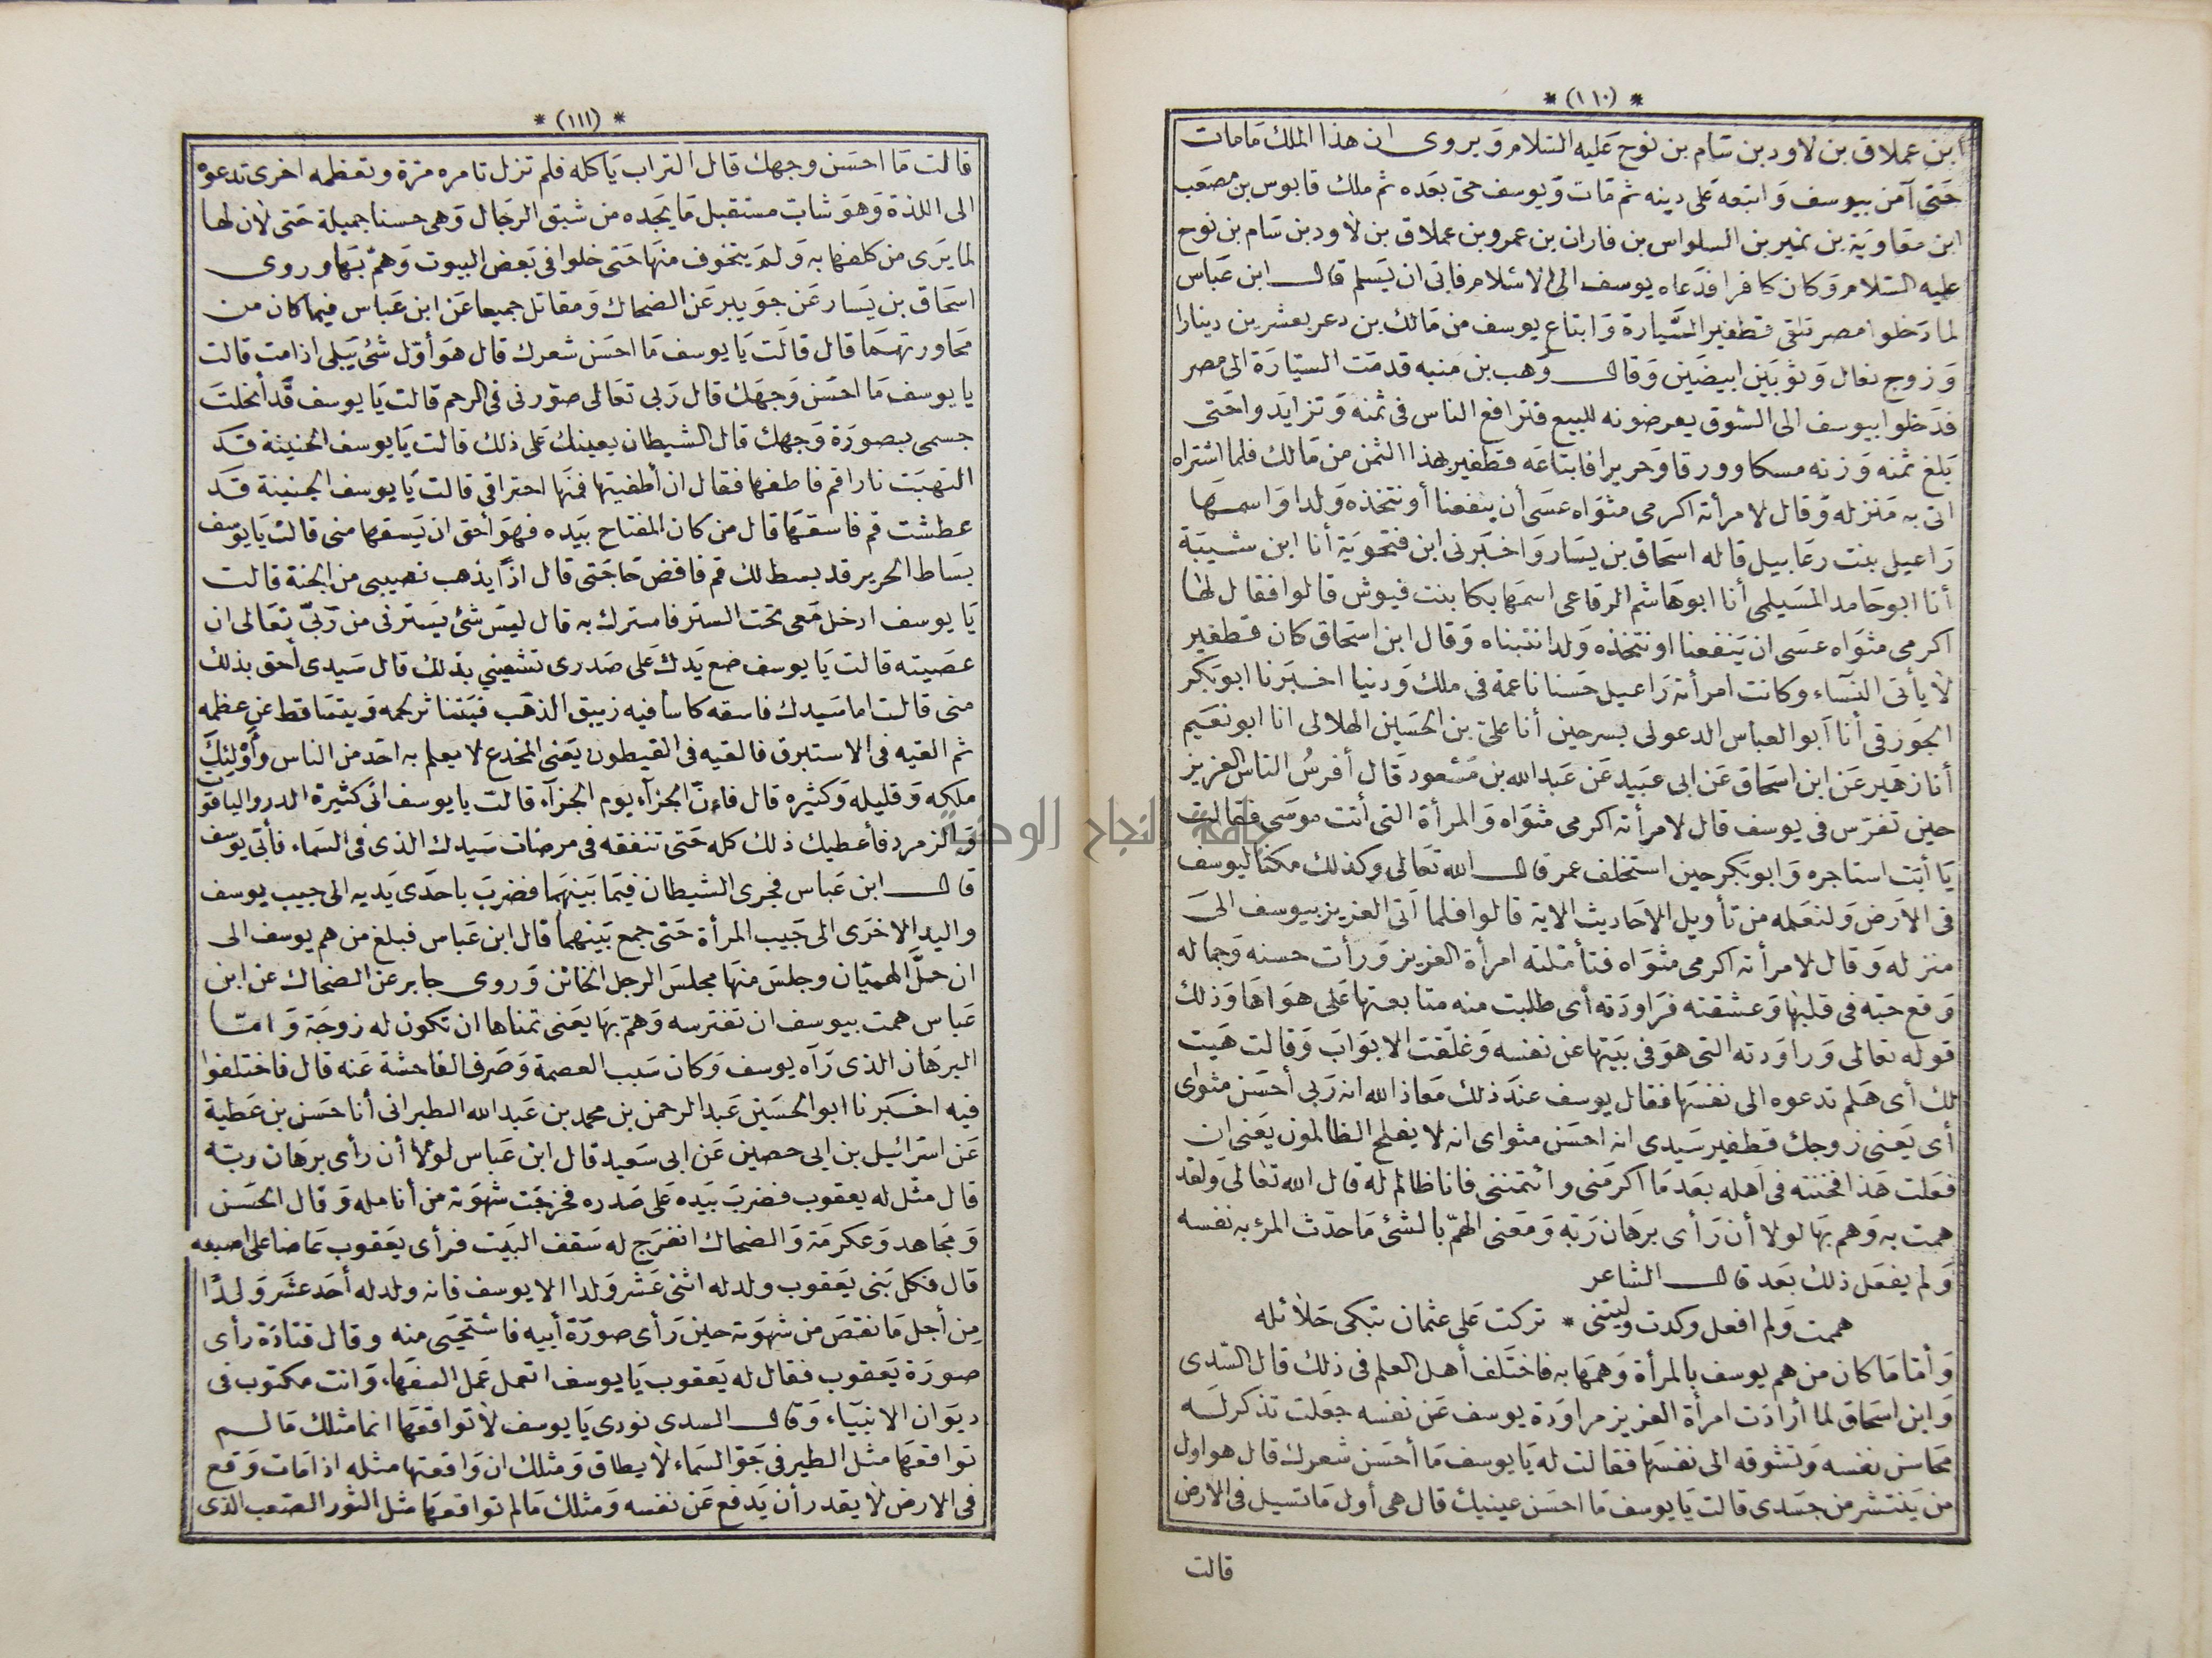 * (١١٠) *
ابن عملاق بن لاود بن سام بن نوح عليه السلام ويروى ان هذا الملك مامات
حتى آمن بيوسف واتبعه على دينه ثم مات ويوسف حى بعده ثم ملك قابوس بن مصعب
ابن معاوية بن نمير بن السلواس بن فاران بن عمرو بن عملاق بن لاود بن سام بن نوح
عليه السلام وكان كافرا فدعاه يوسف الى الاسلام فابى ان يسلم قال ابن عباس
لما دخلوا مصر تلقى قطفير السيارة وابتاع يوسف من مالك بن دعر بعشرين دينارا
وزوج نعال وثوبين ابيضين وقال وهب بن منبه قدمت السيارة الى مصر
فدخلوا بيوسف الى السوق يعرضونه للبيع فترافع الناس فى ثمنه وتزايدوا حتى
بلغ ثمنه وزنه مسكا وورقا وحريرا فابتاعه قطفير بهذا الثمن من مالك فلما اشتراه
اتى به منزله وقال لامرأته اكرمى مثواه عسى أن ينفعنا أو نتخذه ولدا واسمها
راعيل بنت رعابيل قاله اسحاق بن يسار واخبرنى ابن فتحوية أنا ابن شيبة
أنا ابو حامد المسيلمى أنا ابو هاشم الرفاعى اسمها بكا بنت فيوش قالوا فقال لها
اكرمى مثواه عسى ان ينفعنا او نتخذه ولدا نتبناه وقال ابن اسحاق كان قطفير
لا يأتى النسآء وكانت امرأته راعيل حسنا ناعمة فى ملك ودنيا اخبرنا ابو بكر
الجوزقى أنا ابو العباس الدعولى بسرحين أنا على بن الحسين الهلالى انا ابو نعيم
أنا زهير عن ابن اسحاق عن ابى عبيد عن عبد الله بن مسعود قال أفرسُ الناس العزيز
حين تفرس فى يوسف قال لامرأته اكرمى مثواه والمرأة التى أتت موسى فقالت
يا أبت استاجره وابو بكر حين استخلف عمر قال الله تعالى وكذلك مكنا ليوسف
فى الارض ولنعلمه من تأويل الاحاديث الاية قالوا فلما اتى العزيز بيوسف الى
منزله وقال لامرأته اكرمى مثواه فتأملته امرأة العزيز ورأت حسنه وجماله
وقع حبه فى قلبها وعشقته فراودته أى طلبت منه متابعتها على هواها وذلك
قوله تعالى وراودته التى هو فى بيتها عن نفسه وغلقت الابواب وقالت هيت
لك أى هلم تدعوه الى نفسها فقال يوسف عند ذلك معاذ الله انه ربى أحسن مثواى
أى يعنى زوجك قطفير سيدى انه احسن مثواى انه لا يفلح الظالمون يعنى ان
فعلت هذا فخنته فى اهله بعد ما اكرمنى وائتمننى فانا ظالم له قال الله تعالى ولقد
همت به وهم بها لولا أن رأى برهان ربه ومعنى الهمّ بالشئ ما حدّث المرؤ به نفسه
ولم يفعل ذلك بعد قال الشاعر
هممت ولم افعل وكدت وليتنى * تركت على عثمان تبكى حلائله
وأما ما كان من هم يوسف بالمرأة وهمها به فاختلف أهل العلم فى ذلك قال السدى
وابن اسحاق لما أرادت امرأة العزيز مراودة يوسف عن نفسه جعلت تذكر له
محاسن نفسه وتشوقه الى نفسها فقالت له يا يوسف ما أحسن شعرك قال هو اول
من ينتشر من جسدى قالت يا يوسف ما احسن عينيك قال هى أول ما تسيل فى الارض
قالت
* (١١١) *
قالت ما احسن وجهك قال التراب ياكله فلم تزل تامره مرة وتعظمه اخرى تدعوه
الى اللذة وهو شاب مستقبل ما يجده من شبق الرجال وهى حسنا جميلة حتى لان لها
لما يرى من كلفها به ولم يتخوف منها حتى خلوا فى بعض البيوت وهمّ بها وروى
اسحاق بن يسار عن جويبر عن الضحاك ومقاتل جميعا عن ابن عباس فيما كان من
محاورتهما قال قالت يا يوسف ما احسن شعرك قال هو أوّل شئ يبلى اذا مت قالت
يا يوسف ما احسن وجهك قال ربى تعالى صوّرنى فى الرحم قالت يا يوسف قد أنحلت
جسمى بصورة وجهك قال الشيطان يعينك على ذلك قالت يا يوسف الجنينة قد
التهبت نارا قم فاطفها فقال ان أطفيتها فمنها احتراقى قالت يا يوسف الجنينة قد
عطشت قم فاسقها قال من كان المفتاح بيده فهو أحق ان يسقها منى قالت يا يوسف
بساط الحرير قد بسط لك قم فاقض حاجتى قال اذاً يذهب نصيبى من الجنة قالت
يا يوسف ادخل معى تحت الستر فاسترك به قال ليس شئ يسترنى من ربى تعالى ان
عصيته قالت يا يوسف ضع يدك على صدرى تشفينى بذلك قال سيدى أحق بذلك
منى قالت اما سيدك فاسقه كاسا فيه زيبق الذهب فيتناثر لحمه ويتساقط عن عظمه
ثم القيه فى الاستبرق فالقيه فى القيطون يعنى المخدع لا يعلم به احد من الناس وأوليك
ملكه وقليله وكثيره قال فاءن الجزآء يوم الجزآء قالت يا يوسف انى كثيرة الدر والياقوت
والزمرد فأعطيك ذلك كله حتى تنفقه فى مرضات سيدك الذى فى السماء فأبى يوسف
قال ابن عباس فجرى الشيطان فيما بينهما فضرب باحدى يديه الى جيب يوسف
واليد الاخرى الى جيب المرأة حتى جمع بينهما قال ابن عباس فبلغ من هم يوسف الى
ان حلّ الهميان وجلس منها مجلس الرجل الخائن وروى جابر عن الضحاك عن ابن
عباس همت بيوسف ان تفترسه وهم بها يعنى تمناها ان تكون له زوجة وامّا
البرهان الذى رآه يوسف وكان سبب العصمة وصرف الفاحشة عنه قال فاختلفوا
فيه اخبرنا ابو الحسين عبد الرحمن بن محمد بن عبد الله الطبرانى أنا حسن بن عطية
عن اسرائيل بن ابى حصين عن ابى سعيد قال ابن عباس لولا أن رأى برهان ربه
قال مثّل له يعقوب فضرب بيده على صدره فخرجت شهوته من أنامله وقال الحسن
ومجاهد وعكرمة والضحاك انفرج له سقف البيت فرأى يعقوب عاضا على اصبعه
قال فكل بنى يعقوب ولد له اثنى عشر ولدا الا يوسف فانه ولد له أحد عشر ولدا
من أجل ما نقص من شهوته حين رأى صورة أبيه فاستحيى منه وقال قتادة رأى
صورة يعقوب فقال له يعقوب يا يوسف اتعمل عمل السفهاء وانت مكتوب فى
ديوان الانبيآء وقال السدى نودى يا يوسف لا تواقعها انما مثلك ما لم
تواقعها مثل الطير فى جوّ السماء لا يطاق ومثلك ان واقعتها مثله اذا مات وقع
فى الارض لا يقدر أن يدفع عن نفسه ومثلك ما لم تواقعها مثل الثور الصعب الذى
جامعة النجاح الوطنية